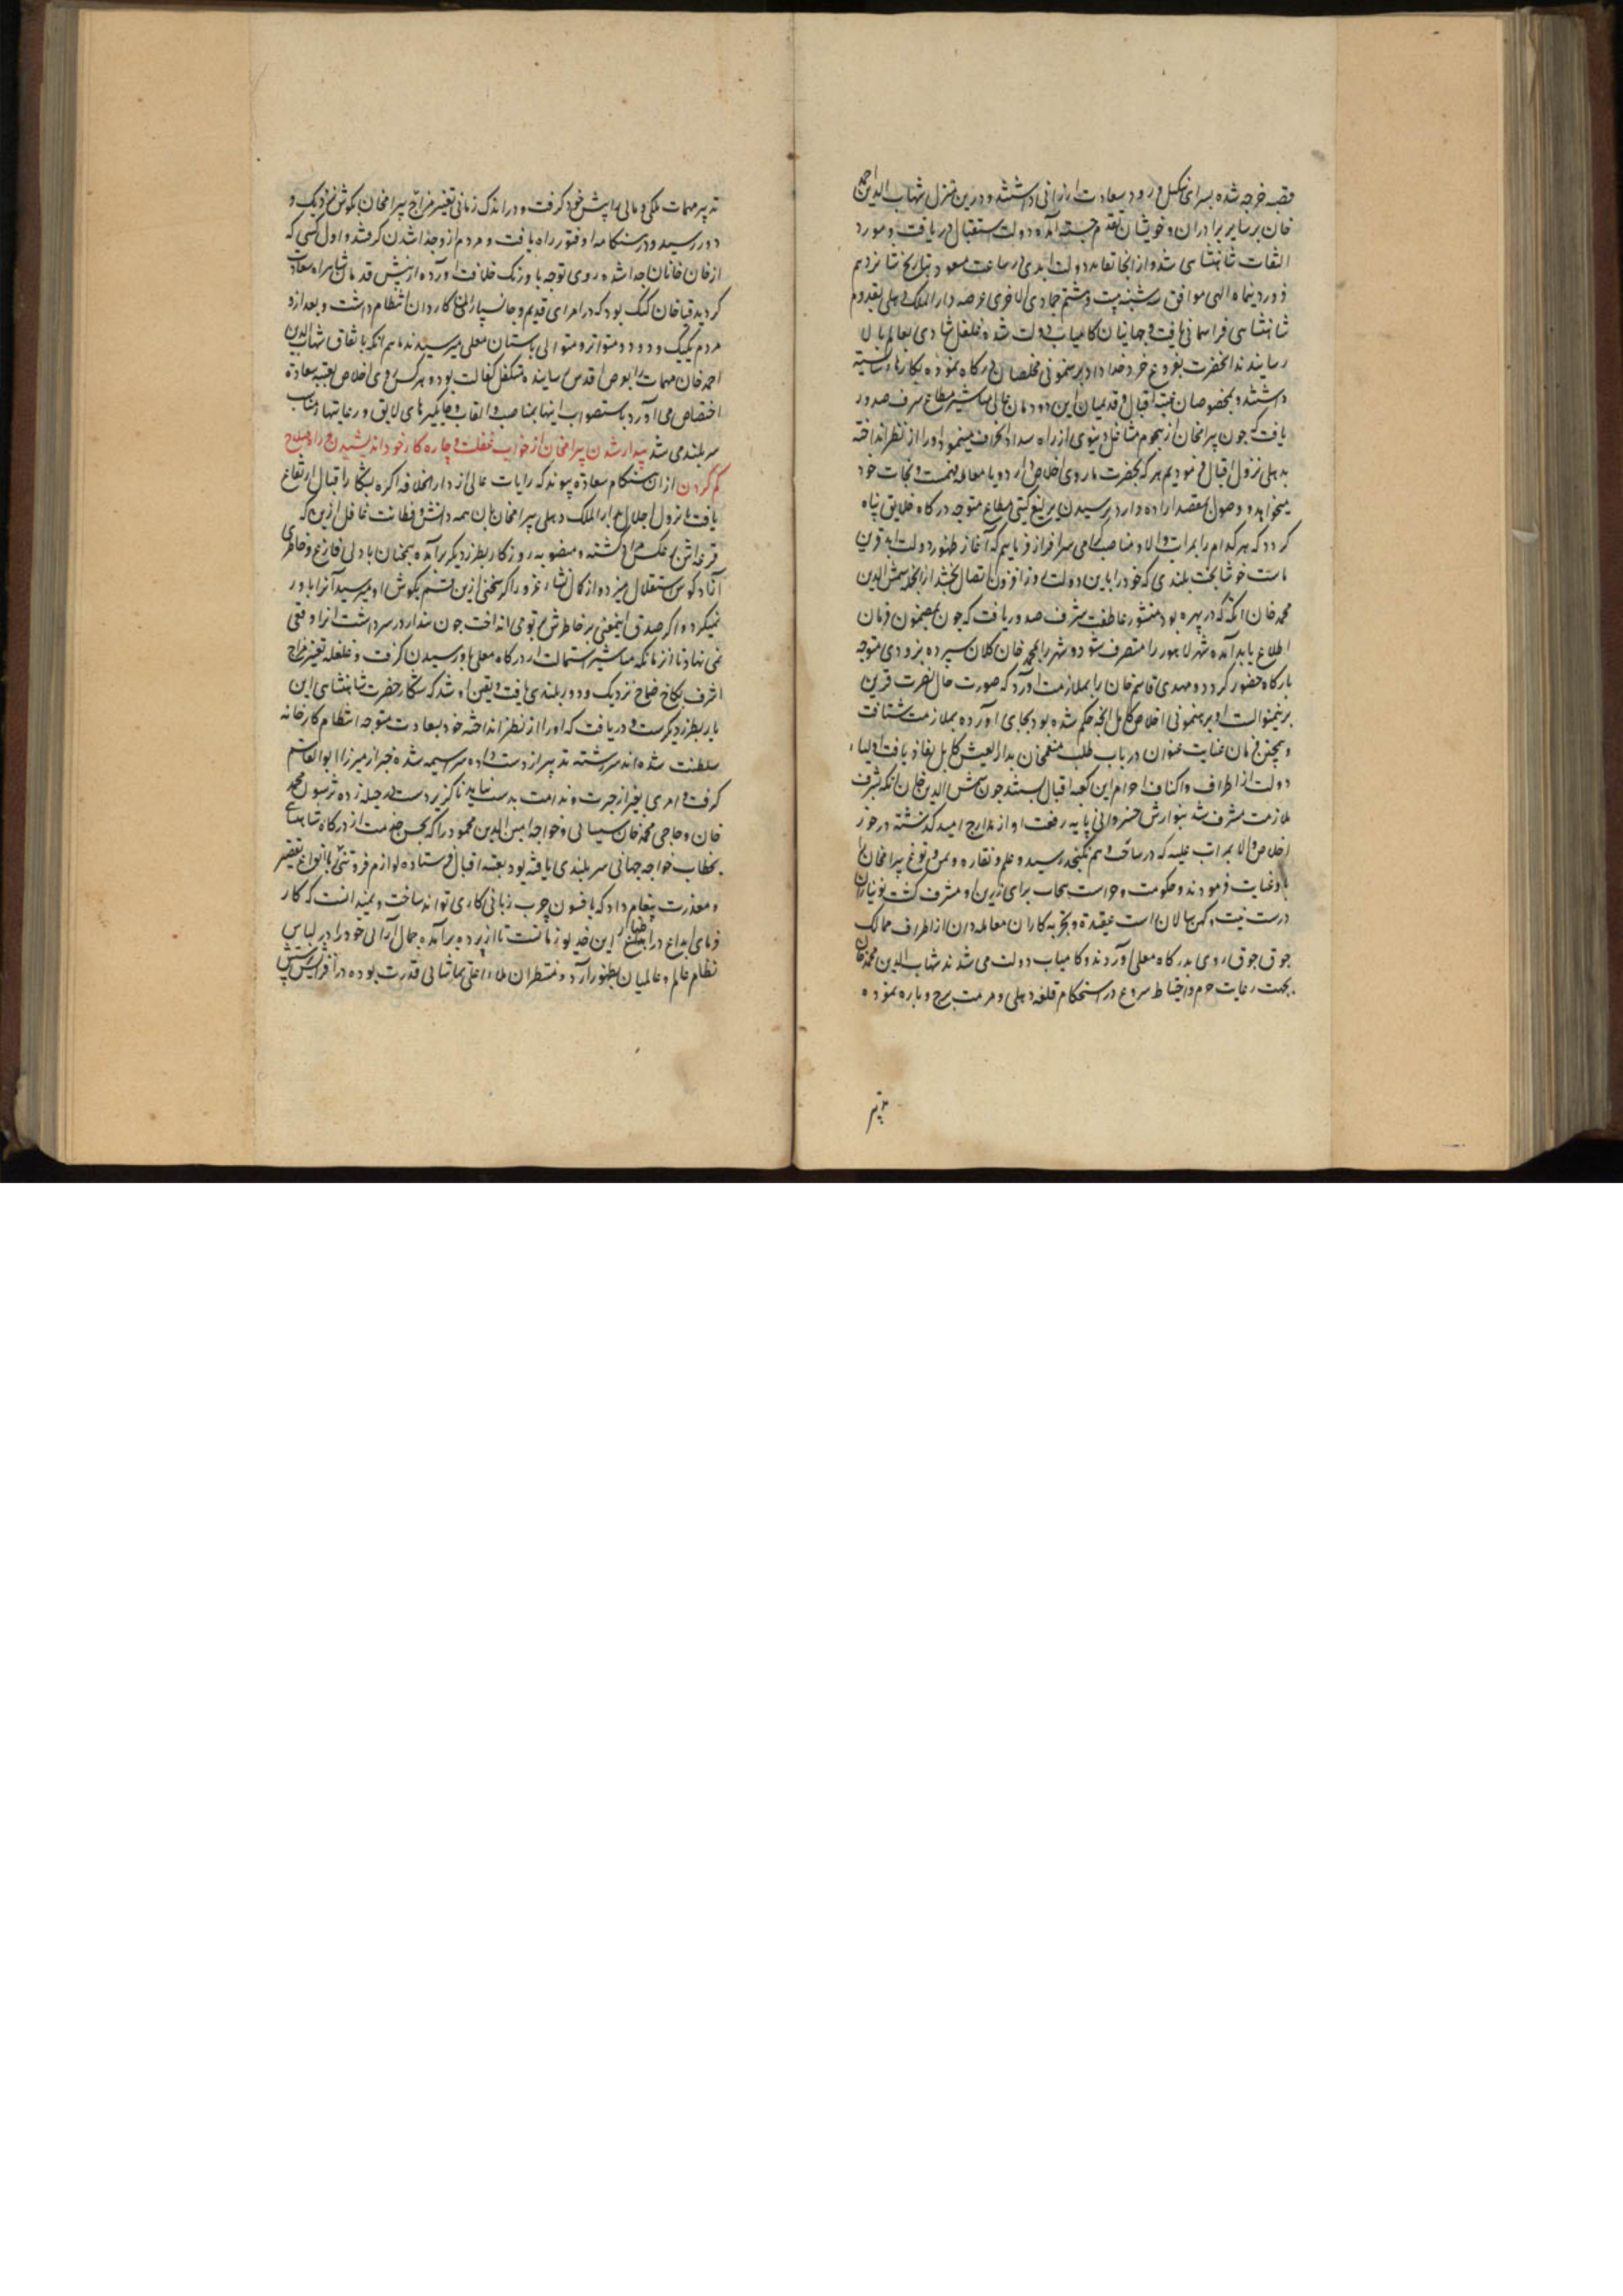 قصبه خرجه شده بسرای نیکل فرود سعادت ارزانی داشتند و درین منزل شهاب الدین احمد
خان بر سایر برادران و خویشان تقدم جسته آمده دولت استقبال دریافت و مورد
التفات شاهنشاهی شد و از انجا تعاید دولت ابدی در ساعت مسعود بتاریخ شانزدهم
فروردینماه الهی موافق سه شنبه بیست و هشتم جمادی الاخری عرصه دار الملک دهلی بقدوم
شاهنشاهی فر آسمانی یافت و جهانیان کامیاب دولت شده غلغل شادی بعالم بالا
رسانیدند انحضرت بفروغ خرد خداداد برهنمونی مخلصان درگاه نموده بکارهای شایسته
داشتند و بمخصوصان عتبه اقبال و قدیمیان این دودمان عالی مناشیر مطاع شرف صدور
یافت که چون بیرامخان از هجوم مشاغل دنیوی از راه سداد انحراف مینمود او را از نظر انداخته
بدهلی نزول اقبال فرمودیم هر که بحضرت ما روی اخلاص آرد یا معامله فهمست و نجات خود
میخواهد و وصول بمقصد اراده دارد برسیدن یرلیغ گیتی مطاع متوجه درگاه خلایق پناه
گردد که هر کدام را بمراتب والا و مناصب گرامی سرافراز فرماییم که آغاز ظهور دولت ابد قرین
ماست خوشا بخت بلندی که خود را باین دولت روز افزون اتصال بخشد از انجمله شمس الدین
محمد خان اتکه که در بهره بود منشور عاطفت شرف صدور یافت که چون بمضمون فرمان
اطلاع یابد آمده شهر لاهور را متصرف شود و شهر را بمحمد خان کلان سپرده بزودی متوجه
بارگاه حضور گردد و مهدی قاسم خان را بملازمت آورد که صورت حال نصرت قرین
برینمنوالست او برهنمونی اخلاص کامل انچه حکم شده بود بجای آورده بملازمت شتافت
و همچنین فرمان عنایت عنوان در باب طلب منعمخان بدار العیش کابل نفاذ یافت اولیاء
دولت از اطراف و اکناف احرام این کعبه اقبال بستند چون شمس الدین خان اتکه بشرف
ملازمت مشرف شد بنوازش خسروانی پایه رفعت او از مدارج امید گذشته در خور
اخلاص والا بمراتب علیه که در ساحت وهم نگنجد رسید و علم و نقاره و تمن و توغ بیرامخان
باو عنایت فرمودند و حکومت و حراست پنجاب برای زرین او مشرف گشت نو نیازان
درست نیت و کهن سالان راست عقیدت و تجربه کاران معامله دان از اطراف ممالک
جوق جوق روی بدرگاه معلی آوردند و کامیاب دولت می شدند شهاب الدین محمد خان
بجهت رعایت حزم و احتیاط شروع در استحکام قلعه دهلی و مرمت برج و باره نموده
تدبیر
تدبیر مهمات ملکی و مالی را پیش خود گرفت و در اندک زمانی تغییر مزاج بیرامخان بگوش نزدیک و
دور رسید و در هنگامه او فتور راه یافت و مردم از و جدا شدن گرفتند و اول کسی که
از خان خانان جدا شده روی توجه باورنگ خلافت آورده از پیش قدمان شاهراه سعادت
گردید قیا خان گنگ بود که در امرای قدیم و جانسپاران کاردان انتظام داشت و بعد ازو
مردم یکیک و دو دو متواتر و متوالی باستان معلی میرسیدند ماهم انکه باتفاق شهاب الدین
احمد خان مهمات را بعرض اقدس رسانیده متکفل کفالت بود و هر کس روی اخلاص بعتبه سعادة
اختصاص می آورد باستصواب اینها بمناصب و القاب و جایگیرهای لایق و رعایتهای مناسب
سربلند می شد بیدار شدن بیرامخان از خواب غفلت و چاره کار خود اندیشیدن و راه صلاح
گم کردن از ان هنگام سعادة پیوند که رایات عالی از دار الخلافه اگره بشکار اقبال ارتفاع
یافت تا نزول اجلال بدار الملک دهلی بیرامخان بان همه دانش و فطانت غافل ازین که
قرعه اش بر عکس مراد گشته و منصوبه روزگار بطرز دیگر برآمده همچنان با دلی فارغ و خاطری
آزاد کوس استقلال میزد و از کمال نشاء غرور اگر سخنی ازین قسم بگوش او میرسید آنرا باور
نمیکرد و اگر صدق اینمعنی بر خاطرش پرتو می انداخت چون پندار در سر داشت انرا وقعی
نمی نهاد تا آنزمانکه مناشیر استمالت از درگاه معلی باو رسیدن گرفت و غلغله تغییر مزاج
اشرف بکاخ صماخ نزدیک و دور بلندی یافت و یقین او شد که شکار حضرت شاهنشاهی این
بار بطرز دیگرست و دریافت که او را از نظر انداخته خود بسعادت متوجه انتظام کارخانه
سلطنت شده اند سررشته تدبیر از دست داده سراسیمه شده خبر از میرزا ابو القاسم
گرفت و امری بغیر از حیرت و ندامت بدست نیامد ناگزیر دست در حیله زده ترسون محمد
خان و حاجی محمد خان سیستانی و خواجه امین الدین محمود را که بحسن خدمت از درگاه شاهنشاهی
بخطاب خواجه جهانی سربلندی یافته بود بعتبه اقبال فرستاده لوازم فروتنی با انواع تقصیر
و معذرت پیغام داد که بافسون چرب زبانی کاری تواند ساخت و نمیدانست که کار
فرمای ابداع در اظهار این خدیو زمانست تا از پرده برآمده جمال آرائی خود را در لباس
نظام عالم و عالمیان بظهور آرد و منتظران ملاء اعلی بتماشائی قدرت بوده در افزایش پرستش